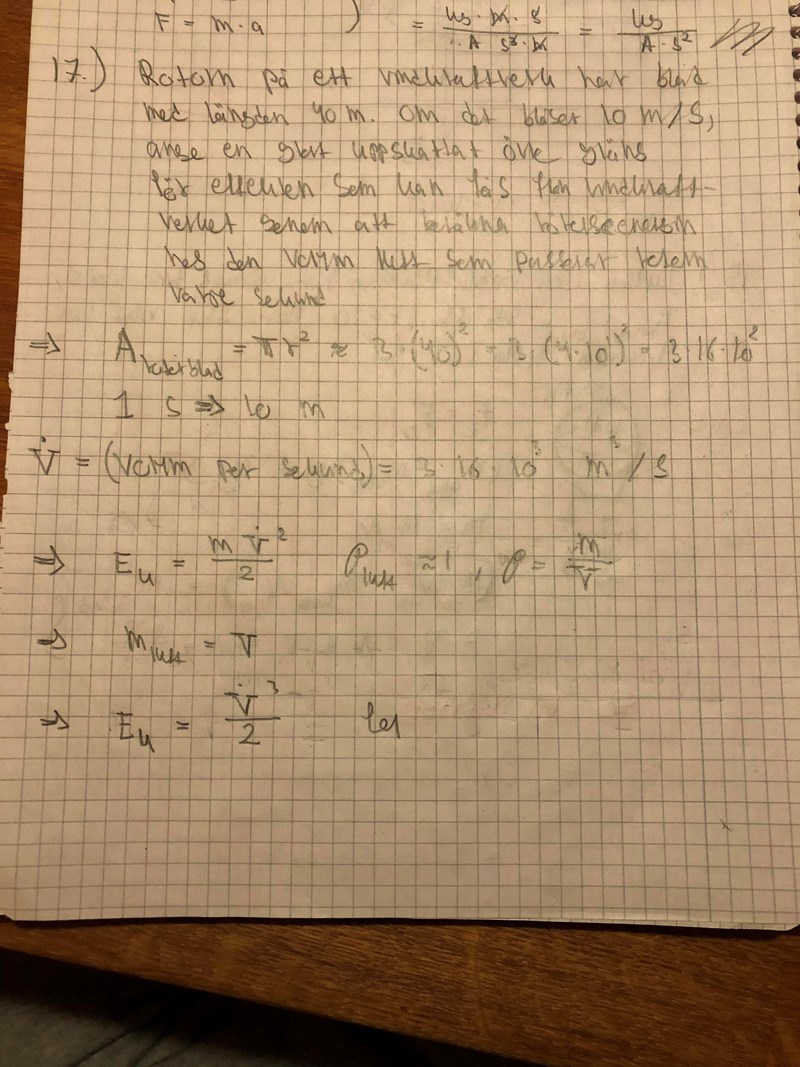 F = m·a ) = kg·m·s / A·s³·m = kg / A·s²
17.) Rotorn på ett vindkraftverk har blad
med längden 40 m. Om det blåser 10 m/s,
ange en grovt uppskattat övre gräns
för effekten som kan fås från vindkraft-
verket genom att beräkna rörelseenergin
hos den volym luft som passerar rotorn
varje sekund
⇒ A rotorblad = πr² ≈ 3·(40)² = 3·(4·10¹)² = 3·16·10²
1 s ⇒ 10 m
V̇ = (volym per sekund) = 3·16·10³ m³/s
⇒ Eₖ = m V̇² / 2 ρ luft ≈ 1 , ρ = m / V
⇒ m luft = V
⇒ Eₖ = V̇³ / 2